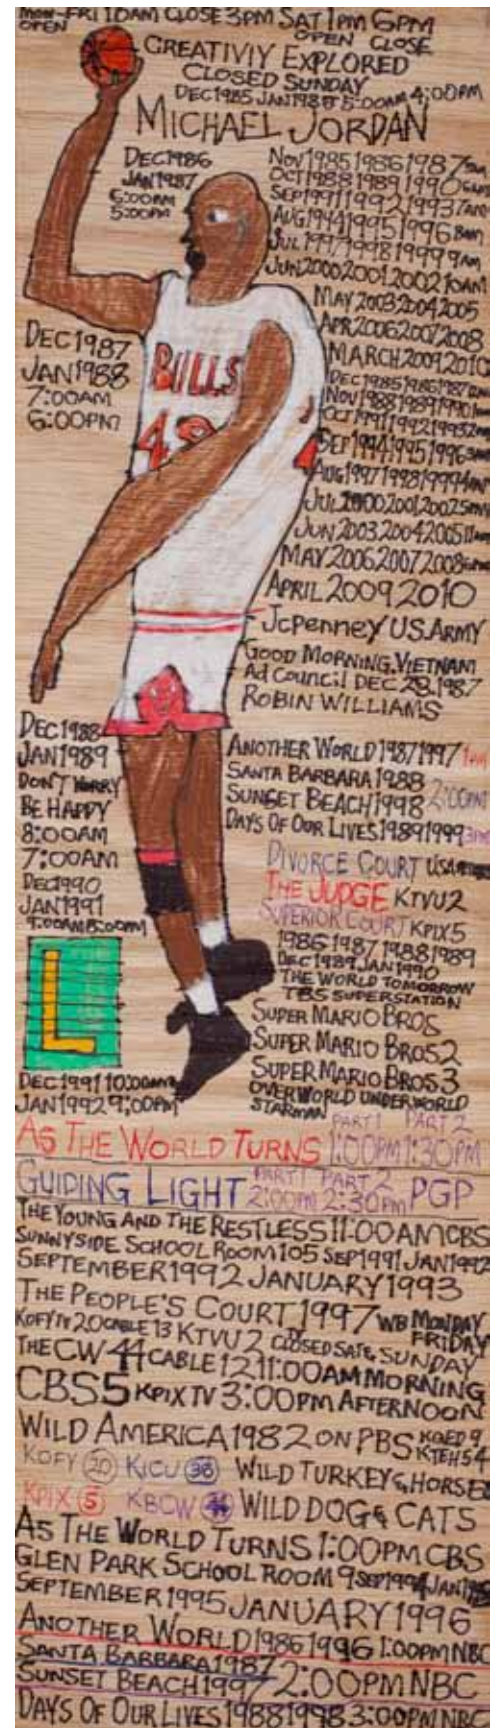 MON-FRI 10AM CLOSE 3PM SAT 1PM 6PM
OPEN OPEN CLOSE
CREATIVIY EXPLORED
CLOSED SUNDAY
DEC1985 JAN1986 5:00AM 4:00PM
MICHAEL JORDAN
DEC1986
JAN1987
6:00AM
5:00PM
NOV1985 1986 1987 5AM
OCT1988 1989 1990 6AM
SEP1991 1992 1993 7AM
AUG1994 1995 1996 8AM
JUL1997 1998 1999 9AM
JUN2000 2001 2002 10AM
MAY 2003 2004 2005
APR 2006 2007 2008
MARCH 2009 2010
DEC1985 1986 1987
NOV1988 1989 1990
OCT1991 1992 1993 2PM
SEP1994 1995 1996 3PM
AUG1997 1998 1999 4PM
JUL2000 2001 2002 5PM
JUN 2003 2004 2005
MAY 2006 2007 2008
APRIL 2009 2010
DEC1987
JAN1988
7:00AM
6:00PM
BULLS
JCPENNEY U.S. ARMY
GOOD MORNING, VIETNAM
Ad COUNCIL DEC 28.1987
ROBIN WILLIAMS
DEC1988
JAN1989
DON'T WORRY
BE HAPPY
8:00AM
7:00AM
DEC1990
JAN1991
9:00AM 8:00PM
ANOTHER WORLD 1987 1997 1PM
SANTA BARBARA 1988
SUNSET BEACH 1998 2:00PM
DAYS OF OUR LIVES 1989 1999 3PM
DIVORCE COURT USA
THE JUDGE KTVU2
SUPERIOR COURT KPIX5
1986 1987 1988 1989
DEC1989 JAN1990
THE WORLD TOMORROW
TBS SUPERSTATION
SUPER MARIO BROS
SUPER MARIO BROS 2
SUPER MARIO BROS 3
OVERWORLD UNDERWORLD
STARMAN
L
DEC1991 10:00AM
JAN1992 9:00PM
PART1 PART 2
AS THE WORLD TURNS 1:00PM 1:30PM
PART1 PART 2
GUIDING LIGHT 2:00PM 2:30PM PGP
THE YOUNG AND THE RESTLESS 11:00AM CBS
SUNNYSIDE SCHOOL ROOM 105 SEP1991 JAN1992
SEPTEMBER 1992 JANUARY 1993
THE PEOPLE'S COURT 1997 WB MONDAY
FRIDAY
KOFY TV 20 CABLE 13 KTVU 2 CLOSED SAT & SUNDAY
THE CW 44 CABLE 12 11:00AM MORNING
CBS 5 KPIX TV 3:00PM AFTERNOON
WILD AMERICA 1982 ON PBS KQED 9
KTEH 54
KOFY 20 KICU 36 WILD TURKEY & HORSE
KPIX 5 KBCW 44 WILD DOG & CATS
AS THE WORLD TURNS 1:00PM CBS
GLEN PARK SCHOOL ROOM 9 SEP1994 JAN
SEPTEMBER 1995 JANUARY 1996
ANOTHER WORLD 1986 1996 1:00PM NBC
SANTA BARBARA 1987
SUNSET BEACH 1997 2:00PM NBC
DAYS OF OUR LIVES 1988 1998 3:00PM NBC